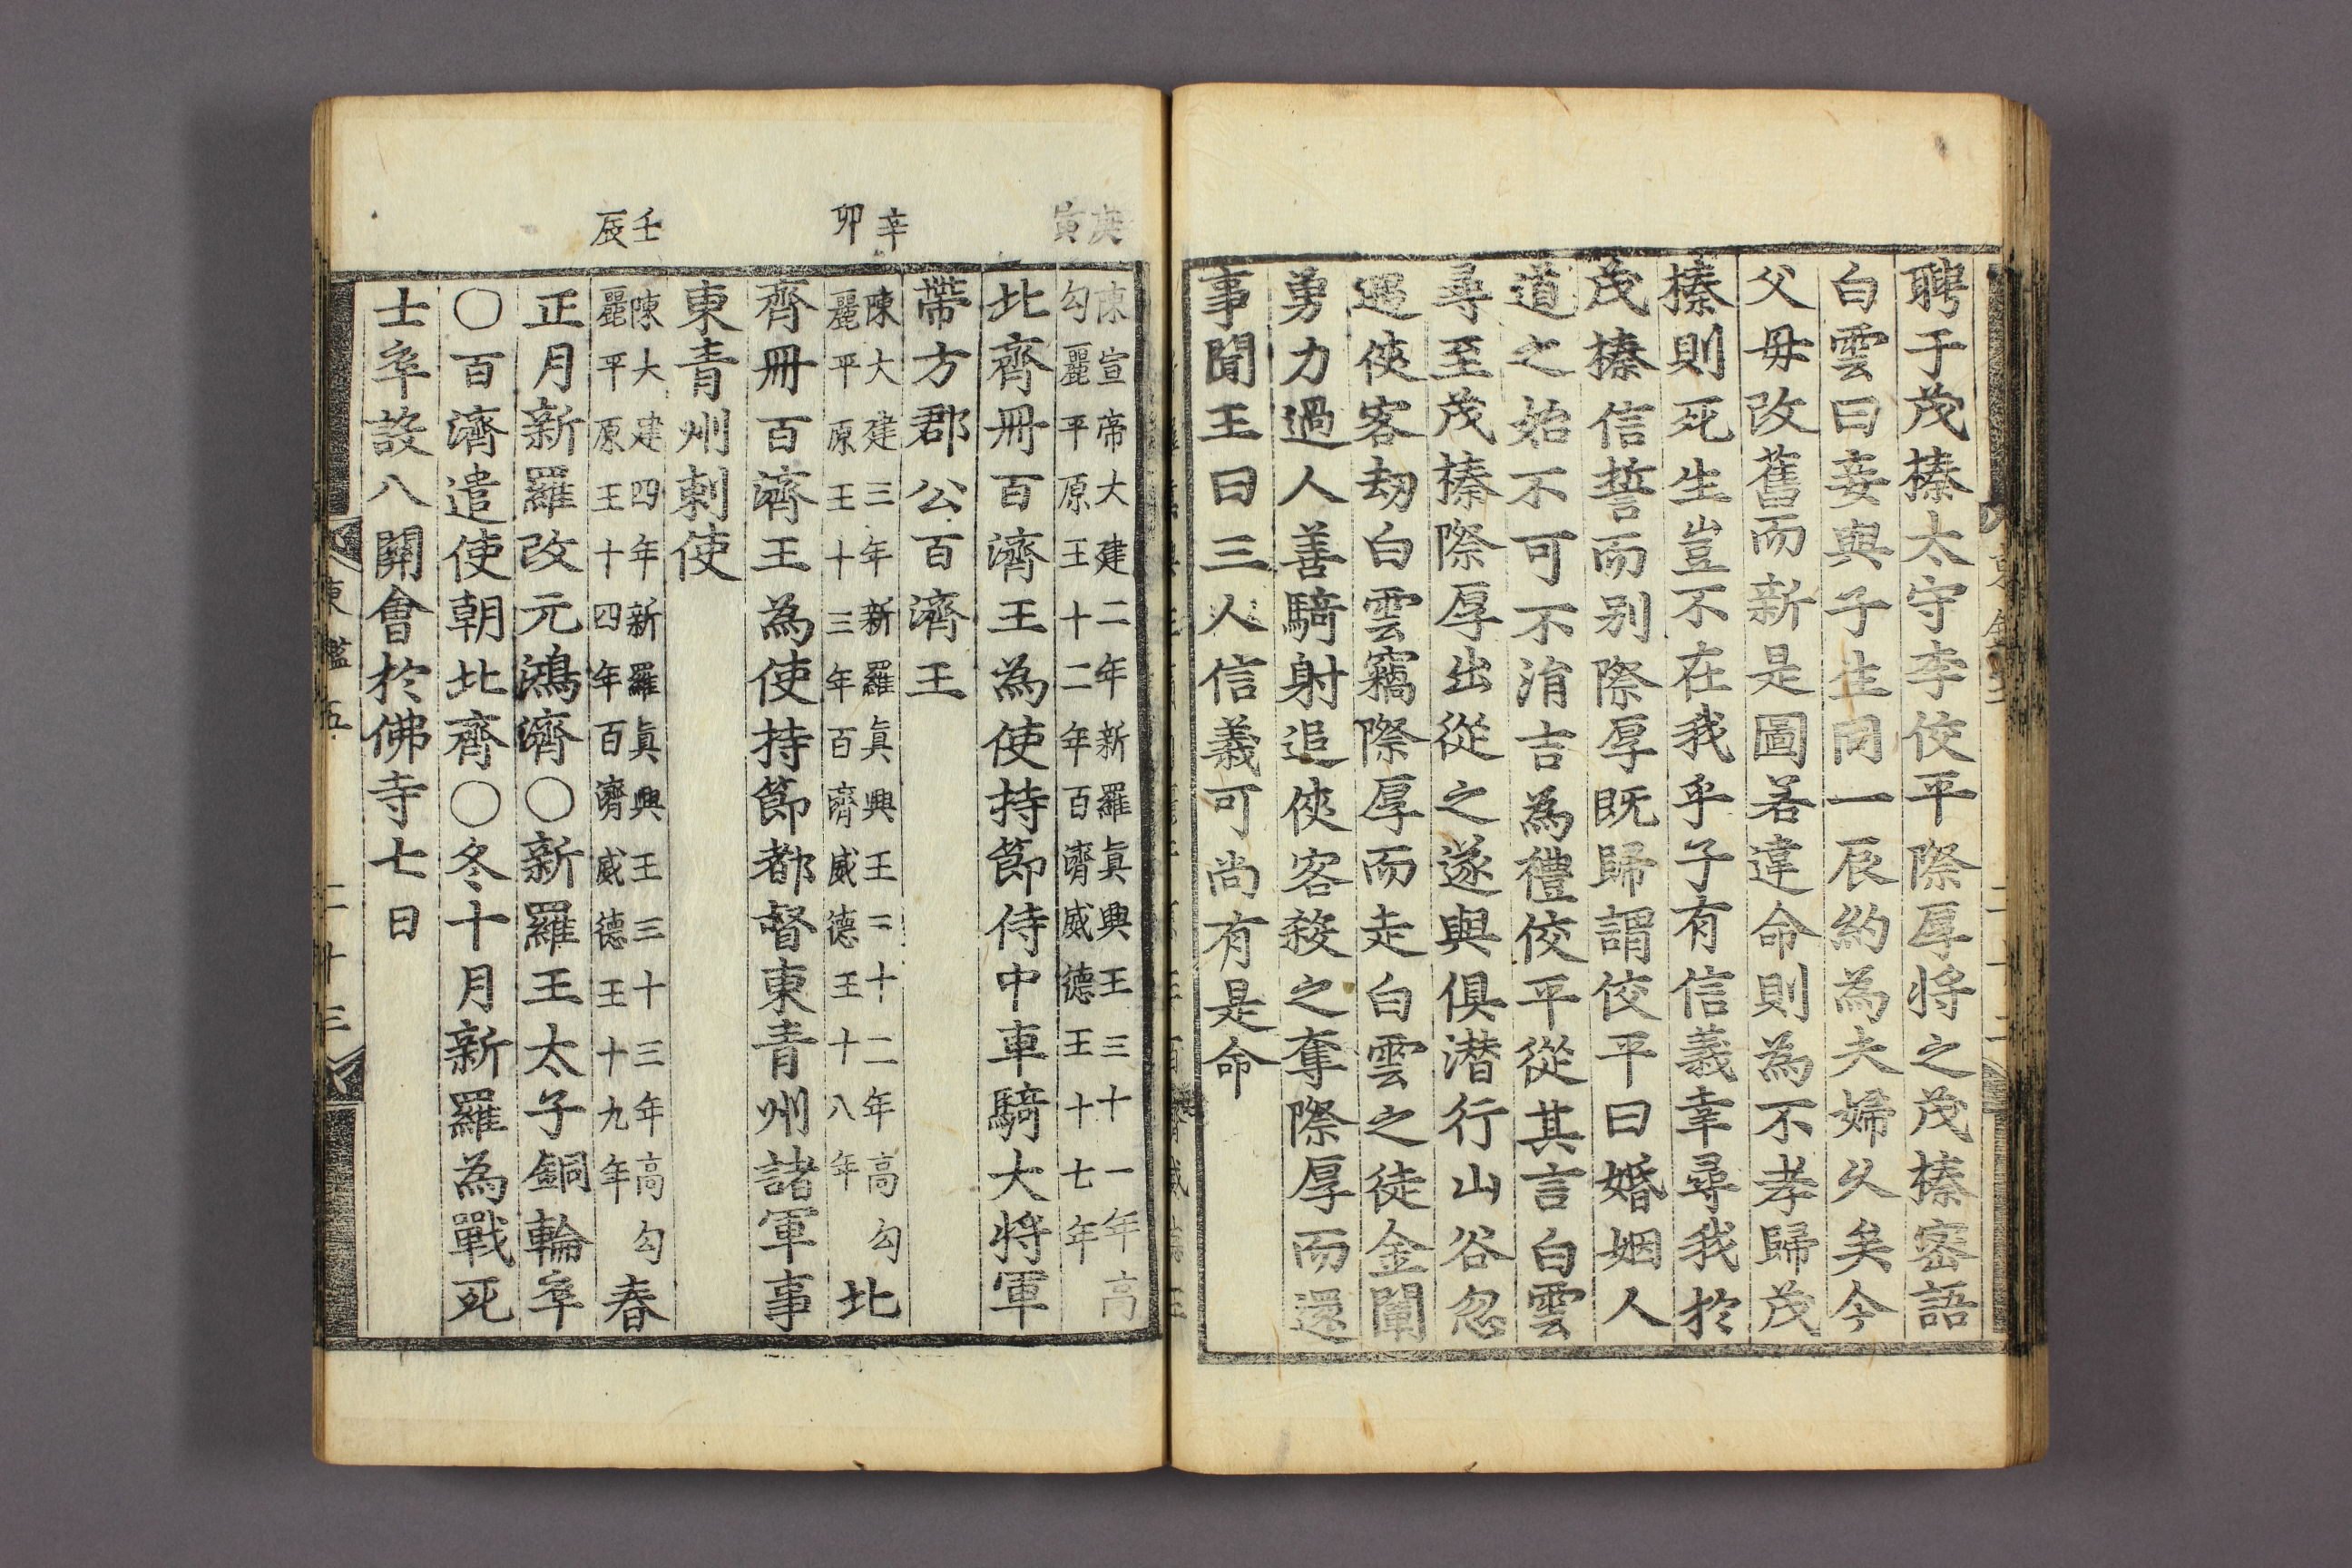 聘于茂榛太守李佼平際厚將之茂榛密語
白雲曰妾與子生同一辰約為夫婦久矣今
父毋改舊而新是圖若違命則為不孝歸茂
榛則死生豈不在我乎子有信義幸尋我於
茂榛信誓而别際厚既歸謂佼平曰婚姻人
道之始不可不涓吉為禮佼平從其言白雲
尋至茂榛際厚出從之遂與俱潜行山谷忽
遇俠客劫白雲竊際厚而走白雲之徒金闡
勇力過人善騎射追俠客殺之奪際厚而還
事聞王曰三人信義可尚有是命
庚寅
陳宣帝大建二年新羅眞興王三十一年高
勾麗平原王十二年百濟威德王十七年
北齊冊百濟王為使持節侍中車騎大將軍
帶方郡公百濟王
辛卯
陳大建三年新羅眞興王三十二年高勾
麗平原王十三年百濟威德王十八年
北
齊冊百濟王為使持節都督東青州諸軍事
東青州刺使
壬辰
陳大建四年新羅眞興王三十三年高勾
麗平原王十四年百濟威德王十九年
春
正月新羅改元鴻濟○新羅王太子銅輪卒
○百濟遣使朝北齊○冬十月新羅為戰死
士卒設八關會於佛寺七日
東鑑五
二十三